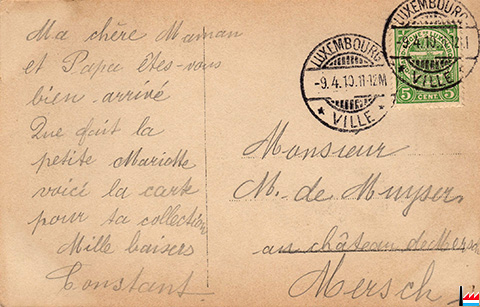 Ma chère Maman
et Papa êtes-vous
bien arrivé
Que fait la
petite Mariette
voicé la carte
pour sa collection
Mille baisers
Constant.
LUXEMBOURG
-9.4.10.11-12M
* VILLE *
LUXEMBOURG
-9.4.10. 12M
* VILLE *
5 CENT. 5
Monsieur
M. de Muyser
au château de Mersch
Mersch